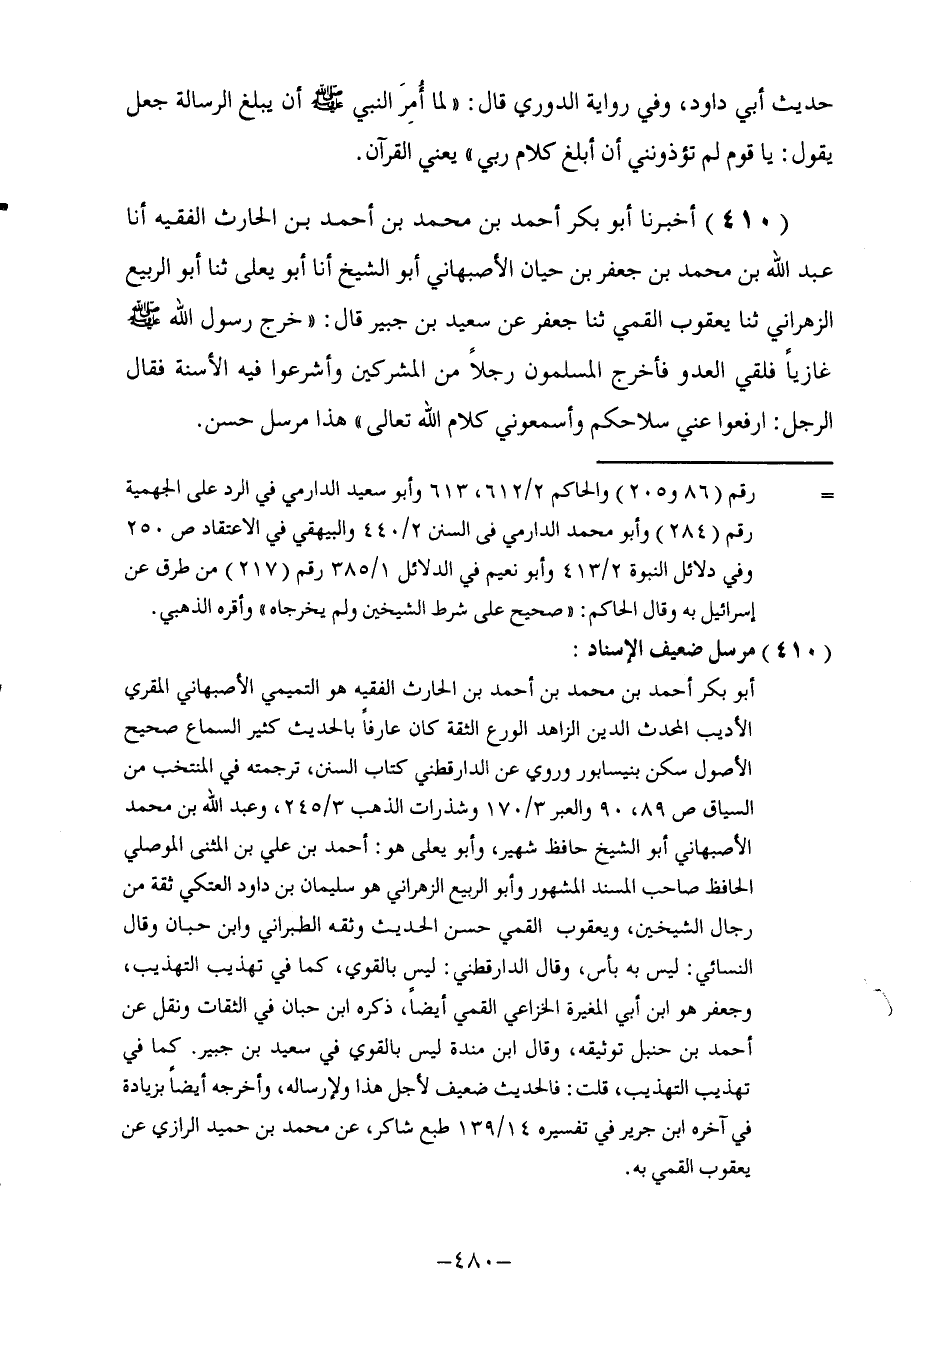 حديث أبي داود، وفي رواية الدوري قال: «لما أُمِرَ النبي ﷺ أن يبلغ الرسالة جعل
يقول: يا قوم لم تؤذونني أن أبلغ كلام ربي» يعني القرآن.
(٤١٠) أخبرنا أبو بكر أحمد بن محمد بن أحمد بن الحارث الفقيه أنا
عبد الله بن محمد بن جعفر بن حيان الأصبهاني أبو الشيخ أنا أبو يعلى ثنا أبو الربيع
الزهراني ثنا يعقوب القمي ثنا جعفر عن سعيد بن جبير قال: «خرج رسول الله ﷺ
غازياً فلقي العدو فأخرج المسلمون رجلاً من المشركين وأشرعوا فيه الأسنة فقال
الرجل: ارفعوا عني سلاحكم وأسمعوني كلام الله تعالى» هذا مرسل حسن.
= رقم (٨٦ و٢٠٥) والحاكم ٦١٢/٢، ٦١٣ وأبو سعيد الدارمي في الرد على الجهمية
رقم (٢٨٤) وأبو محمد الدارمي فى السنن ٤٤٠/٢ والبيهقي في الاعتقاد ص ٢٥٠
وفي دلائل النبوة ٤١٣/٢ وأبو نعيم في الدلائل ٣٨٥/١ رقم (٢١٧) من طرق عن
إسرائيل به وقال الحاكم: «صحيح على شرط الشيخين ولم يخرجاه» وأقره الذهبي.
(٤١٠) مرسل ضعيف الإسناد:
أبو بكر أحمد بن محمد بن أحمد بن الحارث الفقيه هو التميمي الأصبهاني المقري
الأديب المحدث الدين الزاهد الورع الثقة كان عارفاً بالحديث كثير السماع صحيح
الأصول سكن بنيسابور وروي عن الدارقطني كتاب السنن، ترجمته في المنتخب من
السياق ص ٨٩، ٩٠ والعبر ١٧٠/٣ وشذرات الذهب ٢٤٥/٣، وعبد الله بن محمد
الأصبهاني أبو الشيخ حافظ شهير، وأبو يعلى هو: أحمد بن علي بن المثنى الموصلي
الحافظ صاحب المسند المشهور وأبو الربيع الزهراني هو سليمان بن داود العتكي ثقة من
رجال الشيخين، ويعقوب القمي حسن الحديث وثقه الطبراني وابن حبان وقال
النسائي: ليس به بأس، وقال الدارقطني: ليس بالقوي، كما في تهذيب التهذيب،
وجعفر هو ابن أبي المغيرة الخزاعي القمي أيضاً، ذكره ابن حبان في الثقات ونقل عن
أحمد بن حنبل توثيقه، وقال ابن مندة ليس بالقوي في سعيد بن جبير. كما في
تهذيب التهذيب، قلت: فالحديث ضعيف لأجل هذا ولإرساله، وأخرجه أيضاً بزيادة
في آخره ابن جرير في تفسيره ١٣٩/١٤ طبع شاكر، عن محمد بن حميد الرازي عن
يعقوب القمي به.
-٤٨٠-